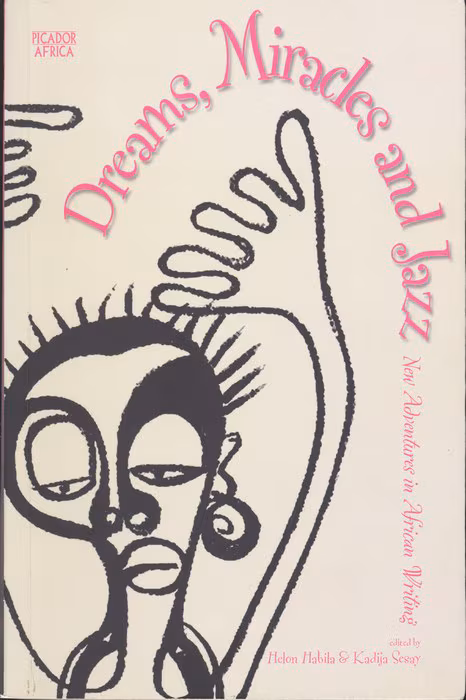 PICADOR
AFRICA
Dreams, Miracles and Jazz
New Adventures in African Writing
edited by
Helon Habila & Kadija Sesay